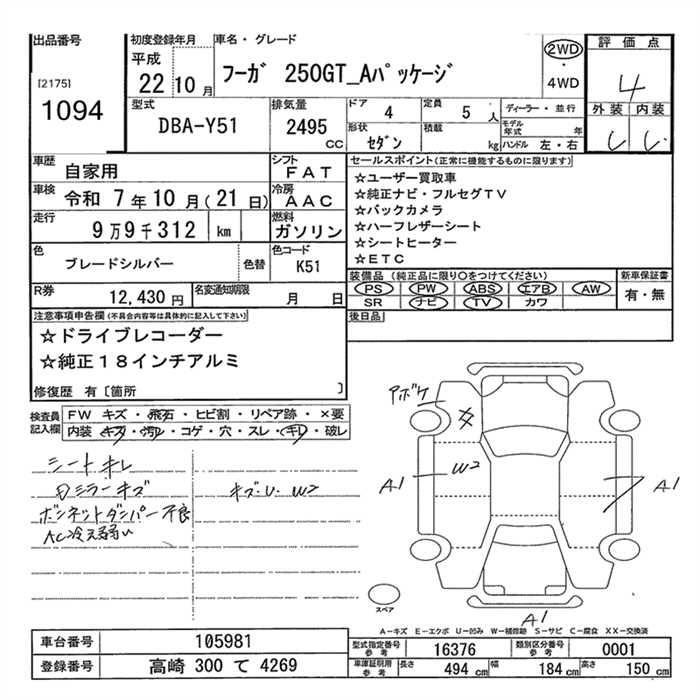 出品番号
[2175]
1094
初度登録年月
平成
22年10月
車名・グレード
フーガ 250GT_Aパッケージ
2WD
・
4WD
評価点
4
外装 内装
型式
DBA-Y51
排気量
2495
CC
ドア
4
定員
5人
形状
セダン
積載
kg
ディーラー・並行
モデル年式 年
ハンドル 左・右
車歴
自家用
シフト
FAT
車検
令和 7年10月(21日)
冷房
AAC
走行
9万9千312 km
燃料
ガソリン
色
ブレードシルバー
色替
色コード
K51
R券
12,430円
名変通知期限
月 日
セールスポイント(正常に機能するものに限ります)
☆ユーザー買取車
☆純正ナビ・フルセグTV
☆バックカメラ
☆ハーフレザーシート
☆シートヒーター
☆ETC
装備品 (純正品に限り○をつけてください)
PS PW ABS エアB AW
SR ナビ TV カワ
新車保証書
有・無
後日品
注意事項申告欄(不具合内容等は具体的に記入して下さい)
☆ドライブレコーダー
☆純正18インチアルミ
修復歴 有〔箇所 〕
検査員
記入欄
FW キズ・飛石・ヒビ割・リペア跡・×要
内装 キズ・汚レ・コゲ・穴・スレ・キレ・破レ
シートキレ
ミラーキズ
ボンネットダンパー不良
AC冷え弱い
キズ・U・W2
アボケ
A1
W2
A1
A1
スペア
A-キズ E-エクボ U-凹み W-補修跡 S-サビ C-腐食 XX-交換済
車台番号
105981
登録番号
高崎 300 て 4269
型式指定番号
参考
16376
類別区分番号
参考
0001
車庫証明用
参考
長さ
494 cm
幅
184 cm
高さ
150 cm